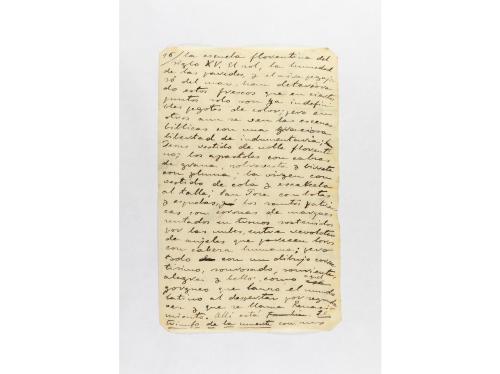 96/ la escuela florentina del
siglo XV. El sol, la humedad
de las paredes, y el aire
del mar, han deteriora
do estos frescos que en ciertos
puntos solo son ya indefini
bles pegotes de color; pero en
otros aun se ven las escenas
bíblicas con una graciosa
libertad de indumentaria;
Jesus vestido de noble florenti
no; los apostoles con calzas
de grana, y birrete
con pluma; la virgen con
vestido de cola y escarcela
al talle; San José con botas
y espuelas, los santos
cas con coronas de marques
sentados en tronos sostenidos
por las nubes, entre revoloteo
de angeles que parecen loros
con cabeza humana; pero
todo con un dibujo correc
tisimo, sonrosado, sonriente,
alegre y bello, como aquel
gorgueo que lanzo el mundo
latino al despertar por segunda
vez y que se llama Renaci
miento. Allí está El
triunfo de la muerte con sus